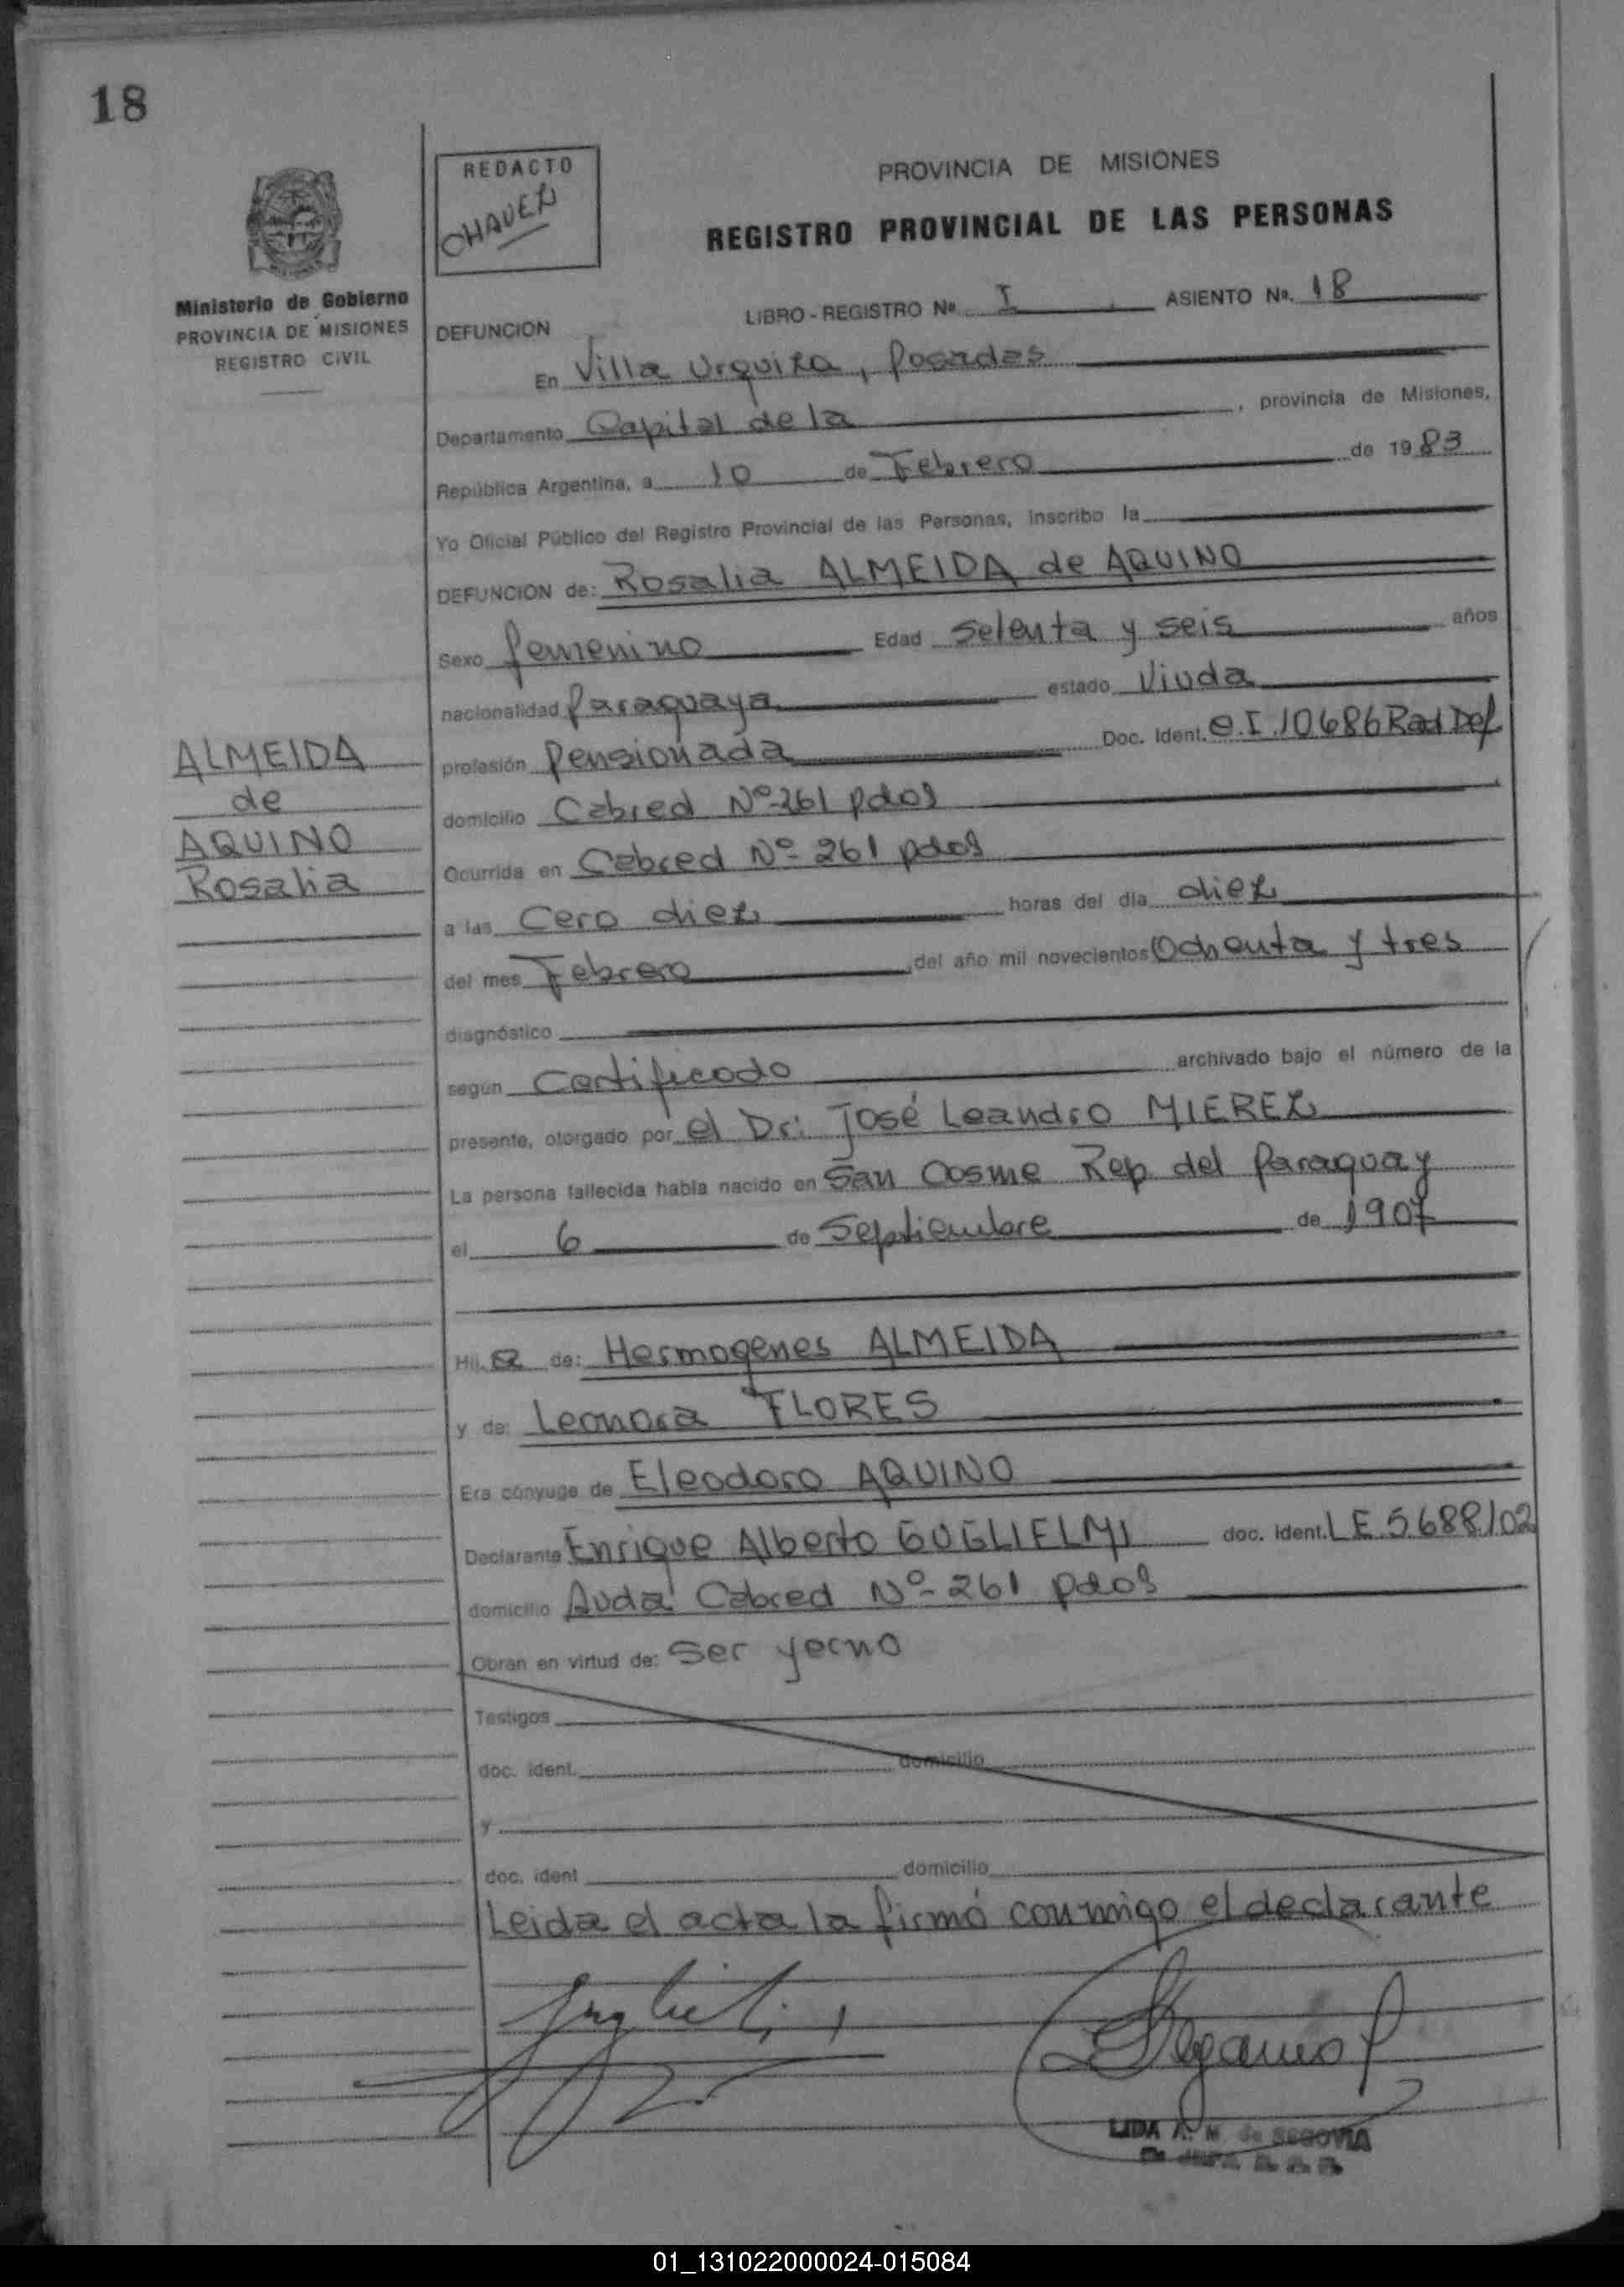 18
REDACTO
CHAVEZ
PROVINCIA DE MISIONES
REGISTRO PROVINCIAL DE LAS PERSONAS
Ministerio de Gobierno
PROVINCIA DE MISIONES
REGISTRO CIVIL
LIBRO - REGISTRO Nº I ASIENTO Nº. 18
DEFUNCION
En Villa Urquiza, Posadas
Departamento Capital de la , provincia de Misiones,
República Argentina, a 10 de Febrero de 1983
Yo Oficial Público del Registro Provincial de las Personas, inscribo la
DEFUNCION de: Rosalia ALMEIDA de AQUINO
Sexo femenino Edad setenta y seis años
nacionalidad Paraguaya estado Viuda
profesión Pensionada Doc. Ident. C.I. 10686 Rad Def
domicilio Cabred Nº 261 pdas
Ocurrida en Cabred Nº 261 pdas
a las Cero diez horas del día diez
del mes Febrero del año mil novecientos Ochenta y tres
diagnóstico
según Certificado archivado bajo el número de la
presente, otorgado por el Dr: José Leandro MIEREZ
La persona fallecida había nacido en San Cosme Rep del Paraguay
el 6 de Septiembre de 1907
Hij.a de: Hermogenes ALMEIDA
y de: Leonora FLORES
Era cónyuge de Eleodoro AQUINO
Declarante Enrique Alberto GUGLIELMI doc. Ident. LE 5688102
domicilio Avda Cabred Nº 261 pdas
Obran en virtud de: Ser yerno
Testigos
doc. ident. domicilio
y
doc. ident domicilio
Leida el acta la firmó conmigo el declarante
LIDA A. M de SEGOVIA
ALMEIDA
de
AQUINO
Rosalia
01_131022000024-015084